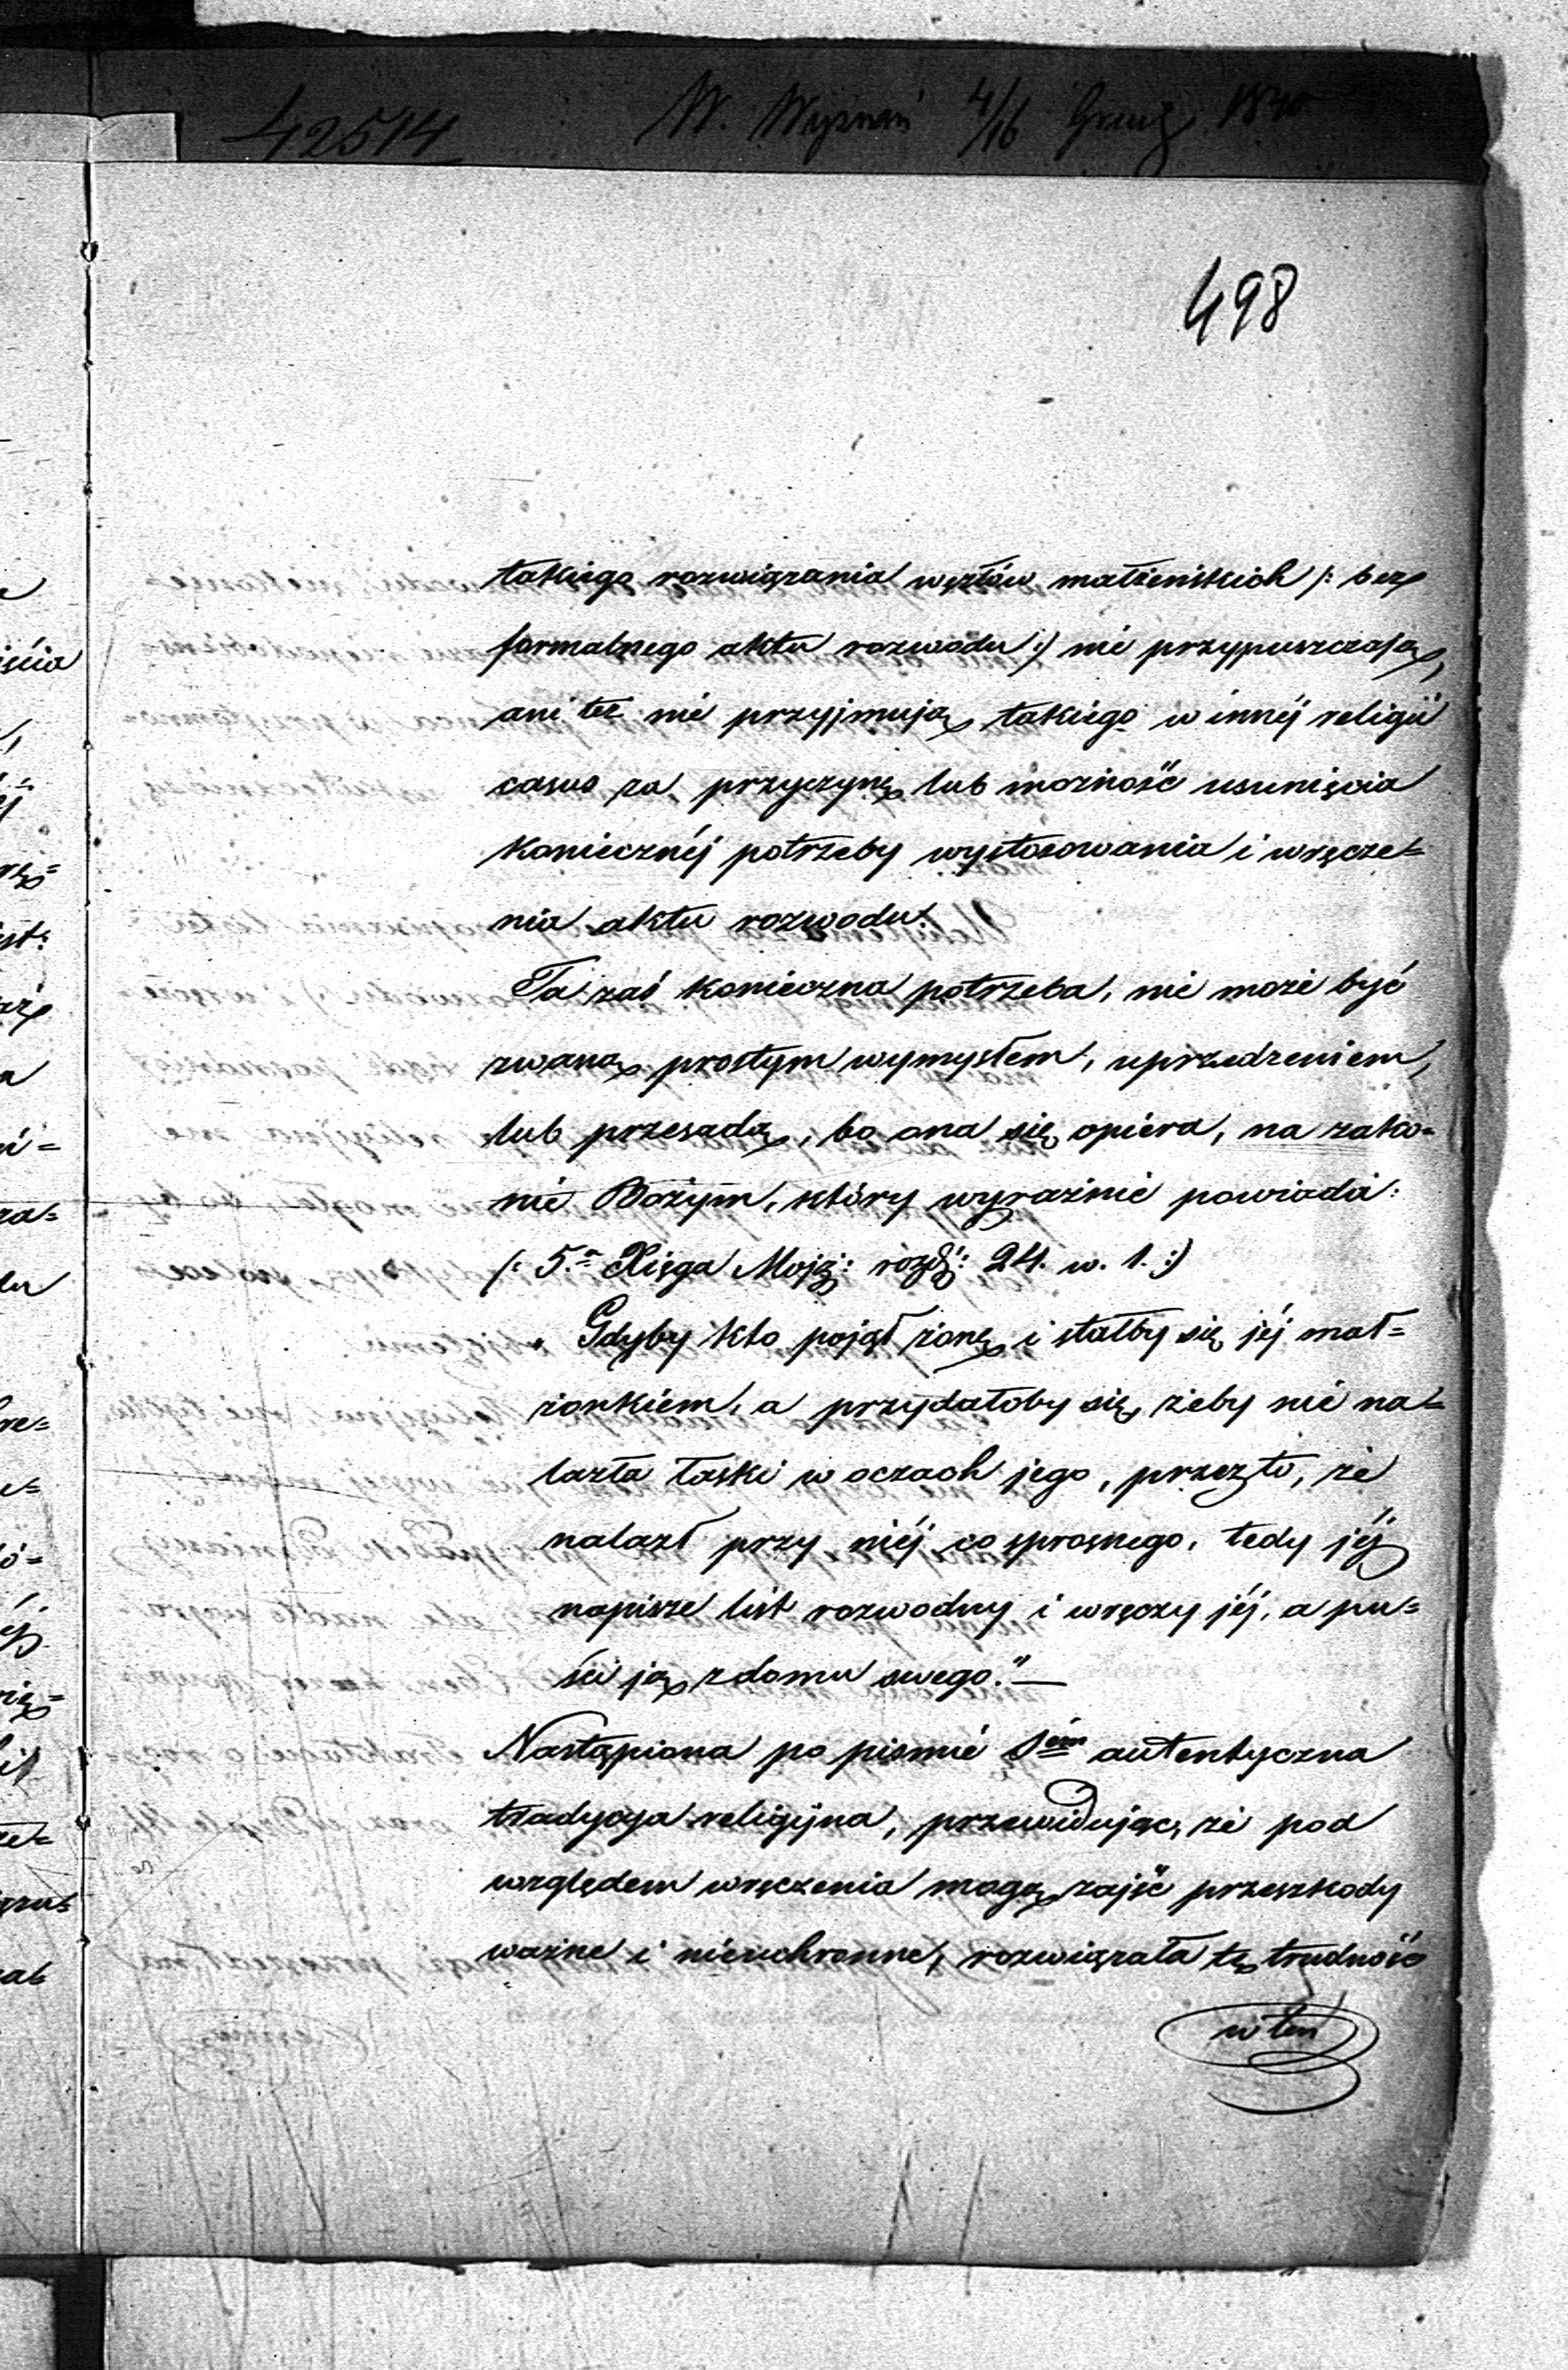 42514 W. Wyznań 4/16 Grud 1840
498
takiego rozwiązania węzłów małżeńskich /: bez
formalnego aktu rozwodu :/ nie przypuszczają,
ani też nie przyjmują takiego w innéj religii
casus za przyczynę lub możność usunięcia
koniecznéj potrzeby wystosowania i wręcze=
nia aktu rozwodu.
Ta zaś konieczna potrzeba, nie może być
zwaną prostym wymysłem, uprzedzeniem,
lub przesadą, bo ona się opiéra, na zako=
nie Bożym, który wyraźnie powiada:
/: 5.a Xięga Mojż: rozdź: 24. w. 1. :/
„Gdyby kto pojął żonę i stałby się jéj mał=
żonkiem, a przydałoby się, żeby nie na=
lazła łaski w oczach jego, przez to, że
nalazł przy niéj co sprosnego, tedy jéj
napisze list rozwodny i wręczy jéj, a pu=
ści ją z domu swego."—
Nastąpiona po piśmie Sém autentyczna
tradycyja religijna, przewidując, że pod
względem wręczenia mogą zajść przeszkody
ważne i nieuchronne, rozwiązała tę trudność
w ten